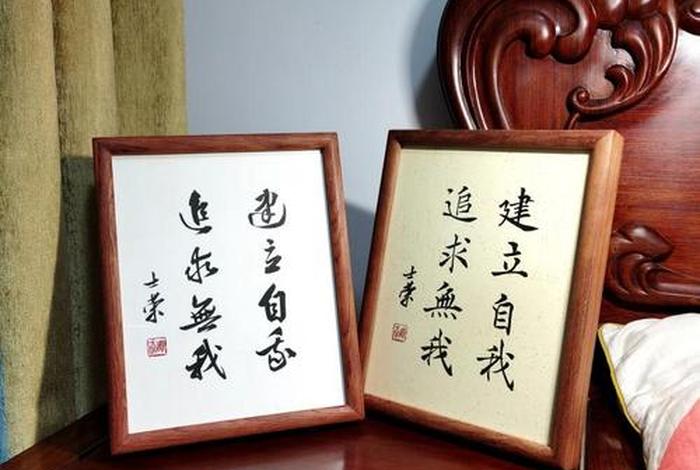 建立自我
追求無我
士荣
建立自我
追求無我
士荣